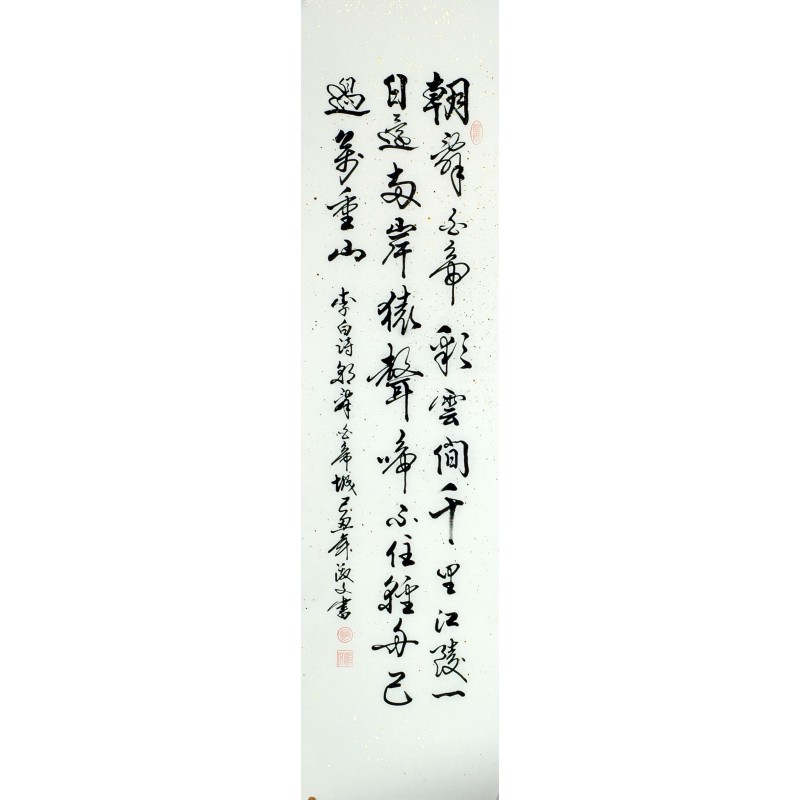 朝辭白帝彩雲間千里江陵一
日還兩岸猿聲啼不住輕舟已
過萬重山
李白詩朝辭白帝城己丑年